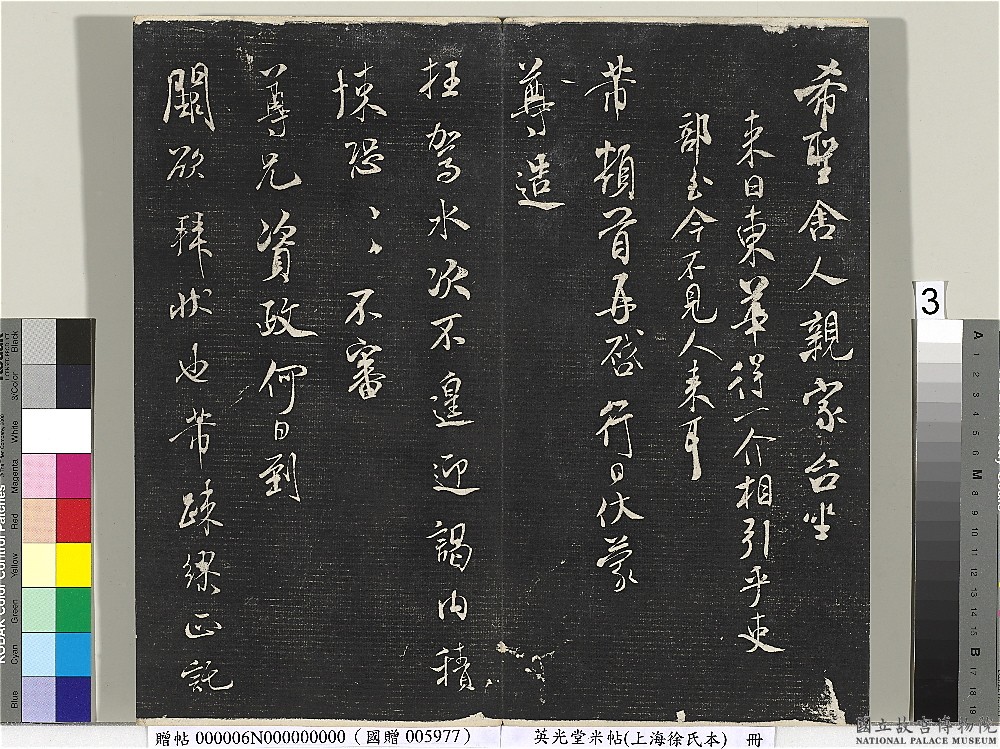 希聖舍人親家台坐
来日東華得一介相引乎吏
部至今不見人来耳
芾頓首再啓行日伏蒙
尊造
枉駕水次不遑迎謁内積
悚恐〻〻不審
尊兄資政何日到
闕欲拜状也芾疎繆正託
贈帖 000006N000000000 (國贈 005977)
英光堂米帖(上海徐氏本) 冊
3
國立故宮博物院
NATIONAL PALACE MUSEUM
KODAK Color Control Patches
Blue
Cyan
Green
Yellow
Red
Magenta
White
3/Color
Black
A
1
2
3
4
5
6
M
8
9
10
11
12
13
14
15
B
17
18
19